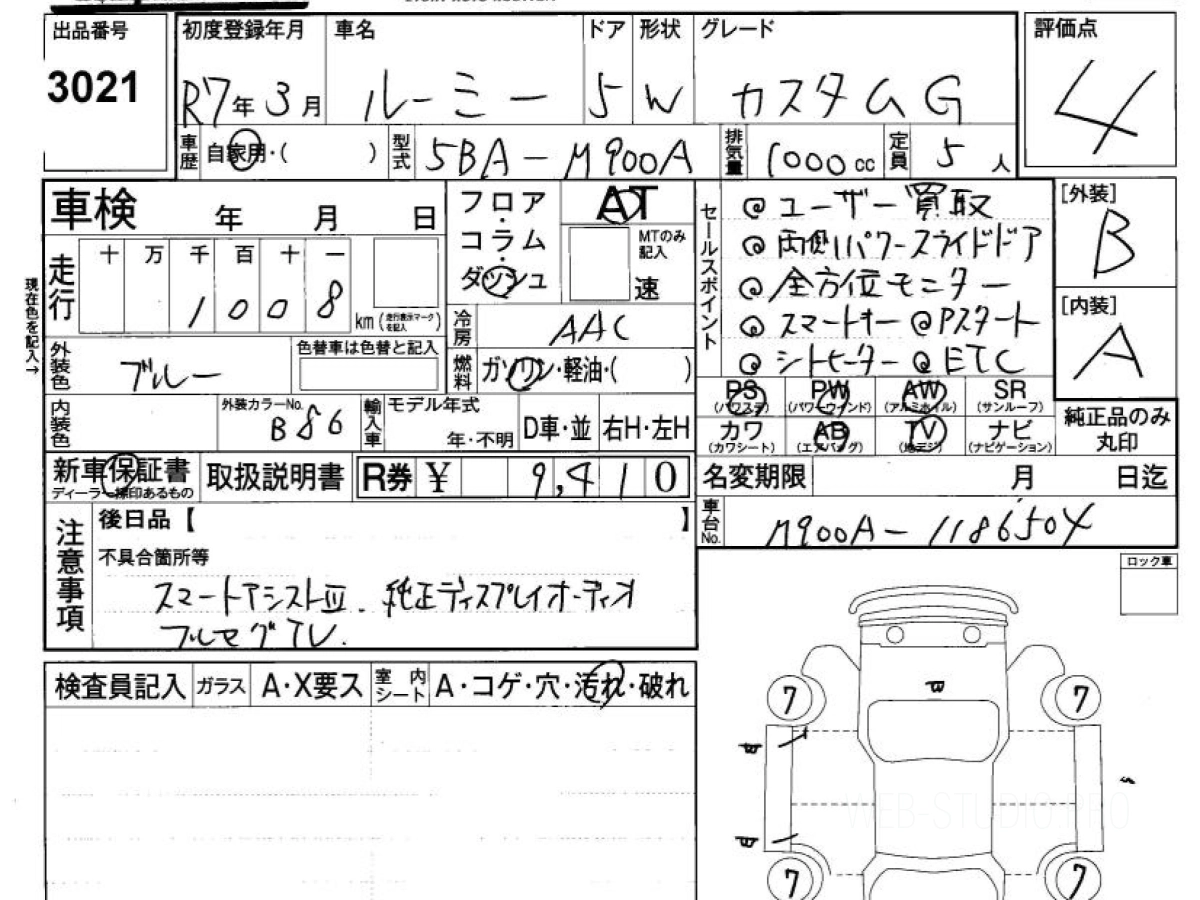 出品番号
3021
初度登録年月
R7年3月
車名
ルーミー
ドア
5
形状
W
グレード
カスタムG
評価点
4
車歴
自家用・( )
型式
5BA-M900A
排気量
1000cc
定員
5人
車検 年 月 日
フロア・コラム・ダッシュ
AT
MTのみ記入
速
セールスポイント
@ユーザー買取
@両側パワースライドドア
@全方位モニター
@スマートキー @Pスタート
@シートヒーター @ETC
[外装]
B
[内装]
A
現在色を記入→
走行
十 万 千 百 十 一
1008
km(走行表示マークを記入)
冷房
AAC
燃料
ガソリン・軽油・( )
外装色
ブルー
色替車は色替と記入
内装色
外装カラーNo.
B86
輸入車
モデル年式
年・不明
D車・並
右H・左H
PS
(パワステ)
PW
(パワーウィンド)
AW
(アルミホイル)
SR
(サンルーフ)
カワ
(カワシート)
AB
(エアバッグ)
TV
(地デジ)
ナビ
(ナビゲーション)
純正品のみ丸印
新車保証書
ディーラー捺印あるもの
取扱説明書
R券 ¥ 9,410
名変期限 月 日迄
車台No.
M900A-1186504
注意事項
後日品【 】
不具合箇所等
スマートアシストⅢ. 純正ディスプレイオーディオ
フルセグTV.
ロック車
検査員記入
ガラス
A・X要ス
室内シート
A・コゲ・穴・汚れ・破れ
7
7
7
7
WEB-STUDIO.PRO